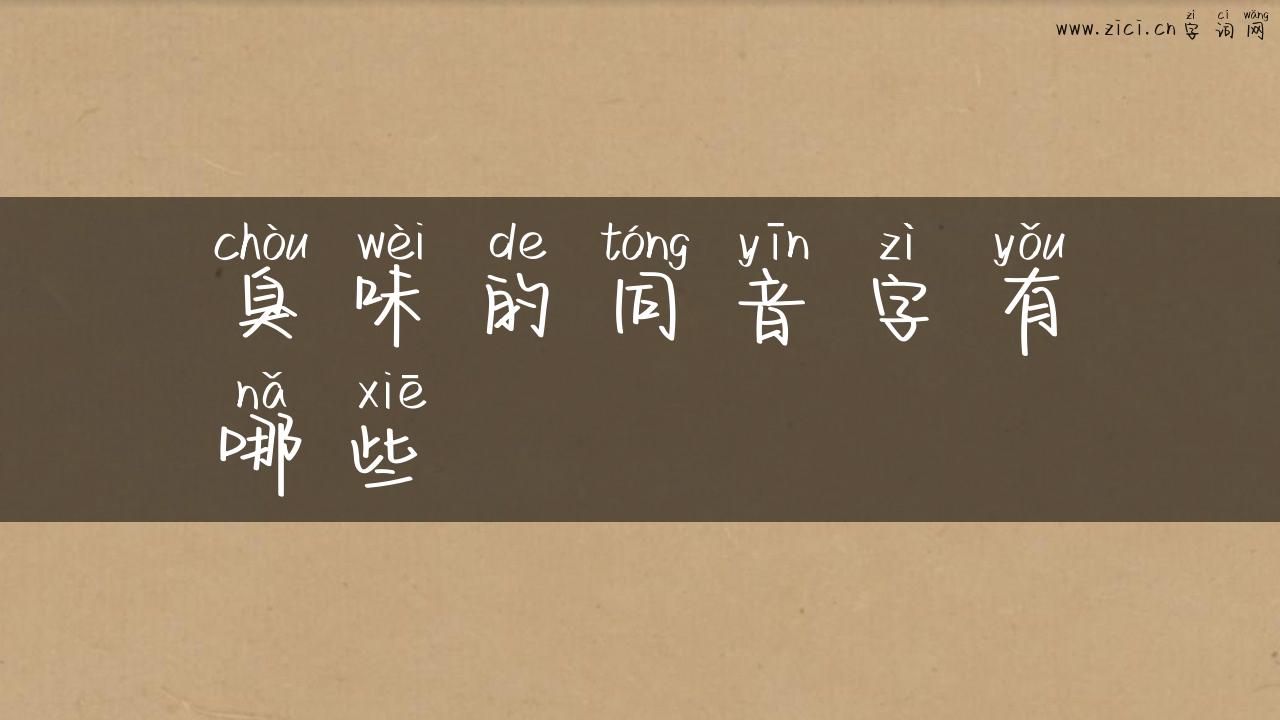 zì cí wǎng
www.zici.cn 字 词 网
chòu wèi de tóng yīn zì yǒu
臭 味 的 同 音 字 有
nǎ xiē
哪 些